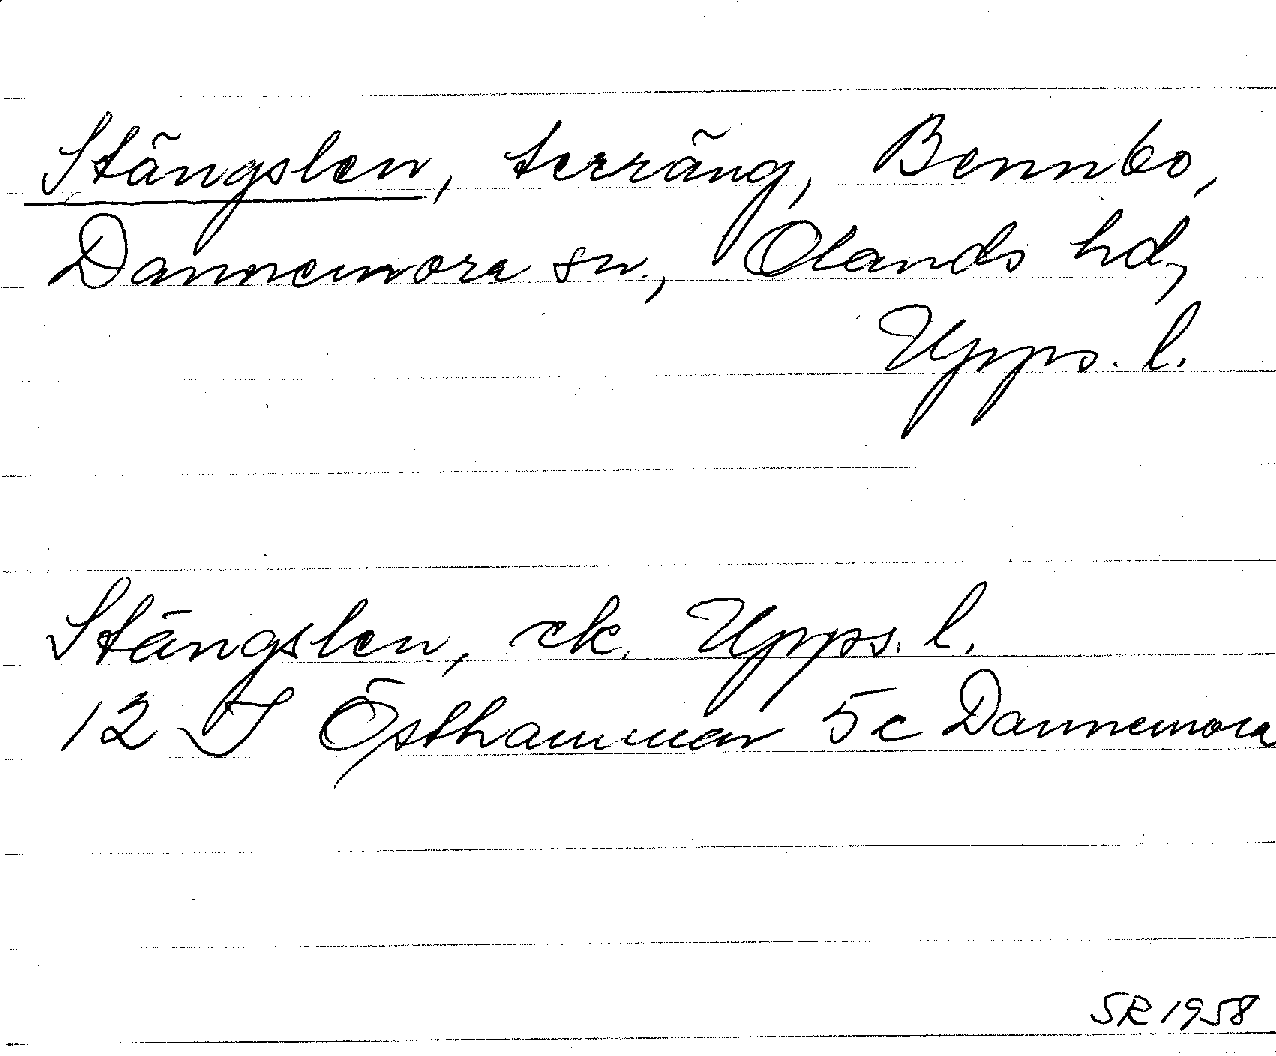 Stängslen, terräng, Bennbo,
Dannemora sn., Olands hd,
Upps. l.
Stängslen, ek. Upps. l.
12 I Östhammar 5c Dannemora
SR 1958